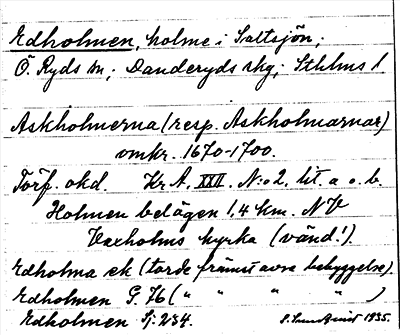 Edholmen, holme i Saltsjön;
Ö. Ryds sn; Danderyds skg; Sthlms l
Askholmerna (resp. Askholmarnar)
omkr. 1670-1700.
Förf. okd. Kr A. XXII. N:o 2, lit. a o. b.
Holmen belägen 1,4 km. NV
Vaxholms kyrka (vänd!).
Edholma ek (torde främst avse bebyggelse).
Edholmen G. 76 ( " " " " )
Edholmen Sj: 234. 1935.